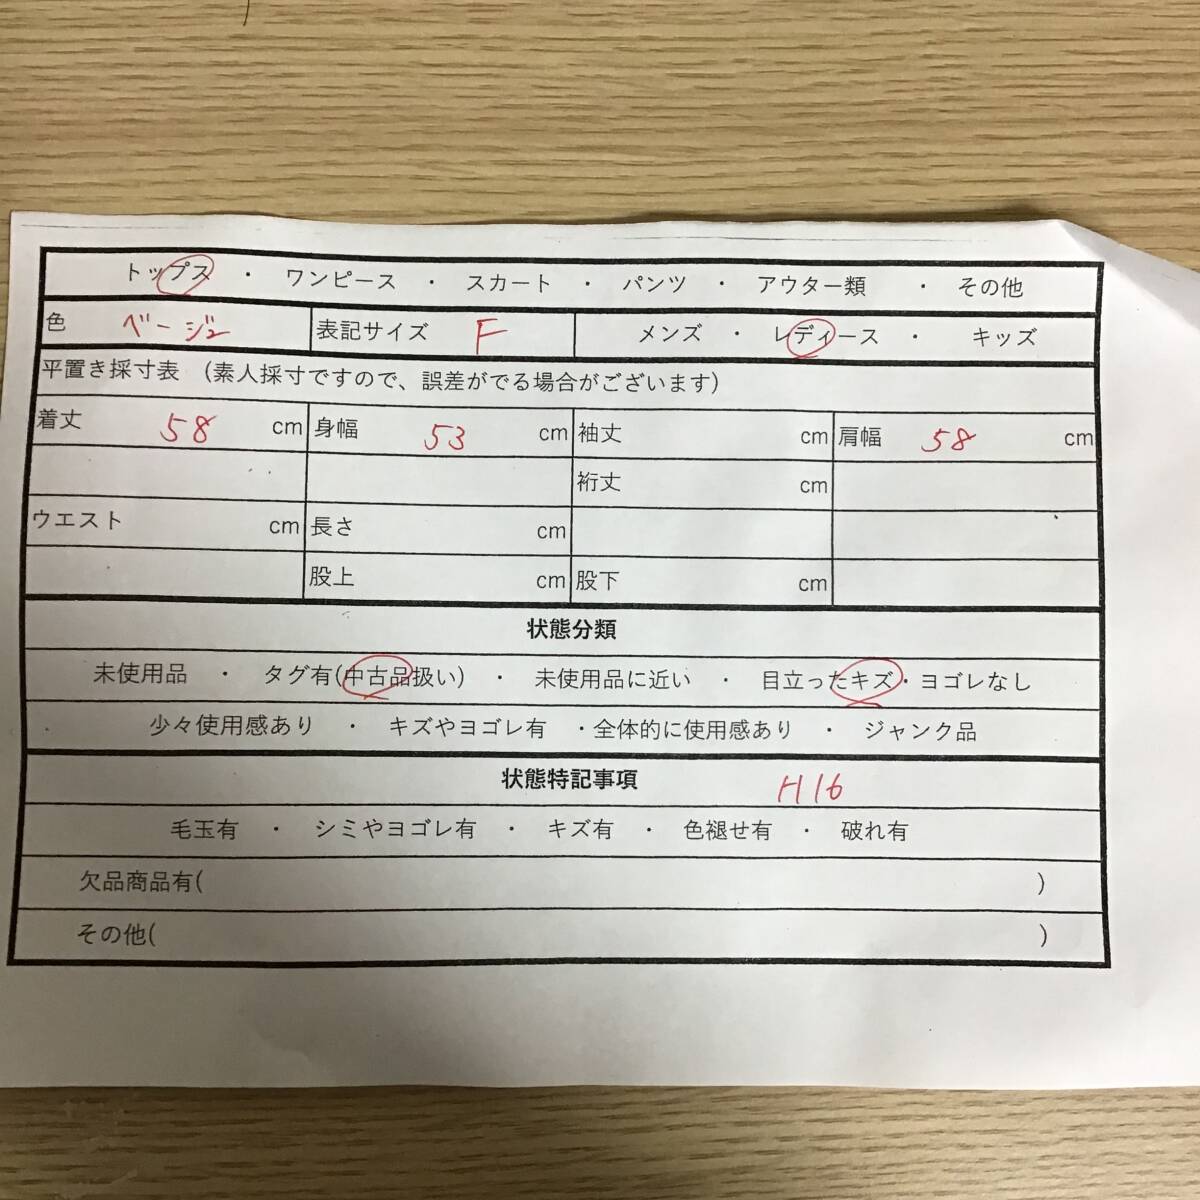 トップス ・ ワンピース ・ スカート ・ パンツ ・ アウター類 ・ その他
色 ベージュ 表記サイズ F メンズ ・ レディース ・ キッズ
平置き採寸表 (素人採寸ですので、誤差がでる場合がございます)
着丈 58 cm 身幅 53 cm 袖丈 cm 肩幅 58 cm
裄丈 cm
ウエスト cm 長さ cm
股上 cm 股下 cm
状態分類
未使用品 ・ タグ有(中古品扱い) ・ 未使用品に近い ・ 目立ったキズ・ヨゴレなし
少々使用感あり ・ キズやヨゴレ有 ・全体的に使用感あり ・ ジャンク品
状態特記事項 H16
毛玉有 ・ シミやヨゴレ有 ・ キズ有 ・ 色褪せ有 ・ 破れ有
欠品商品有( )
その他( )